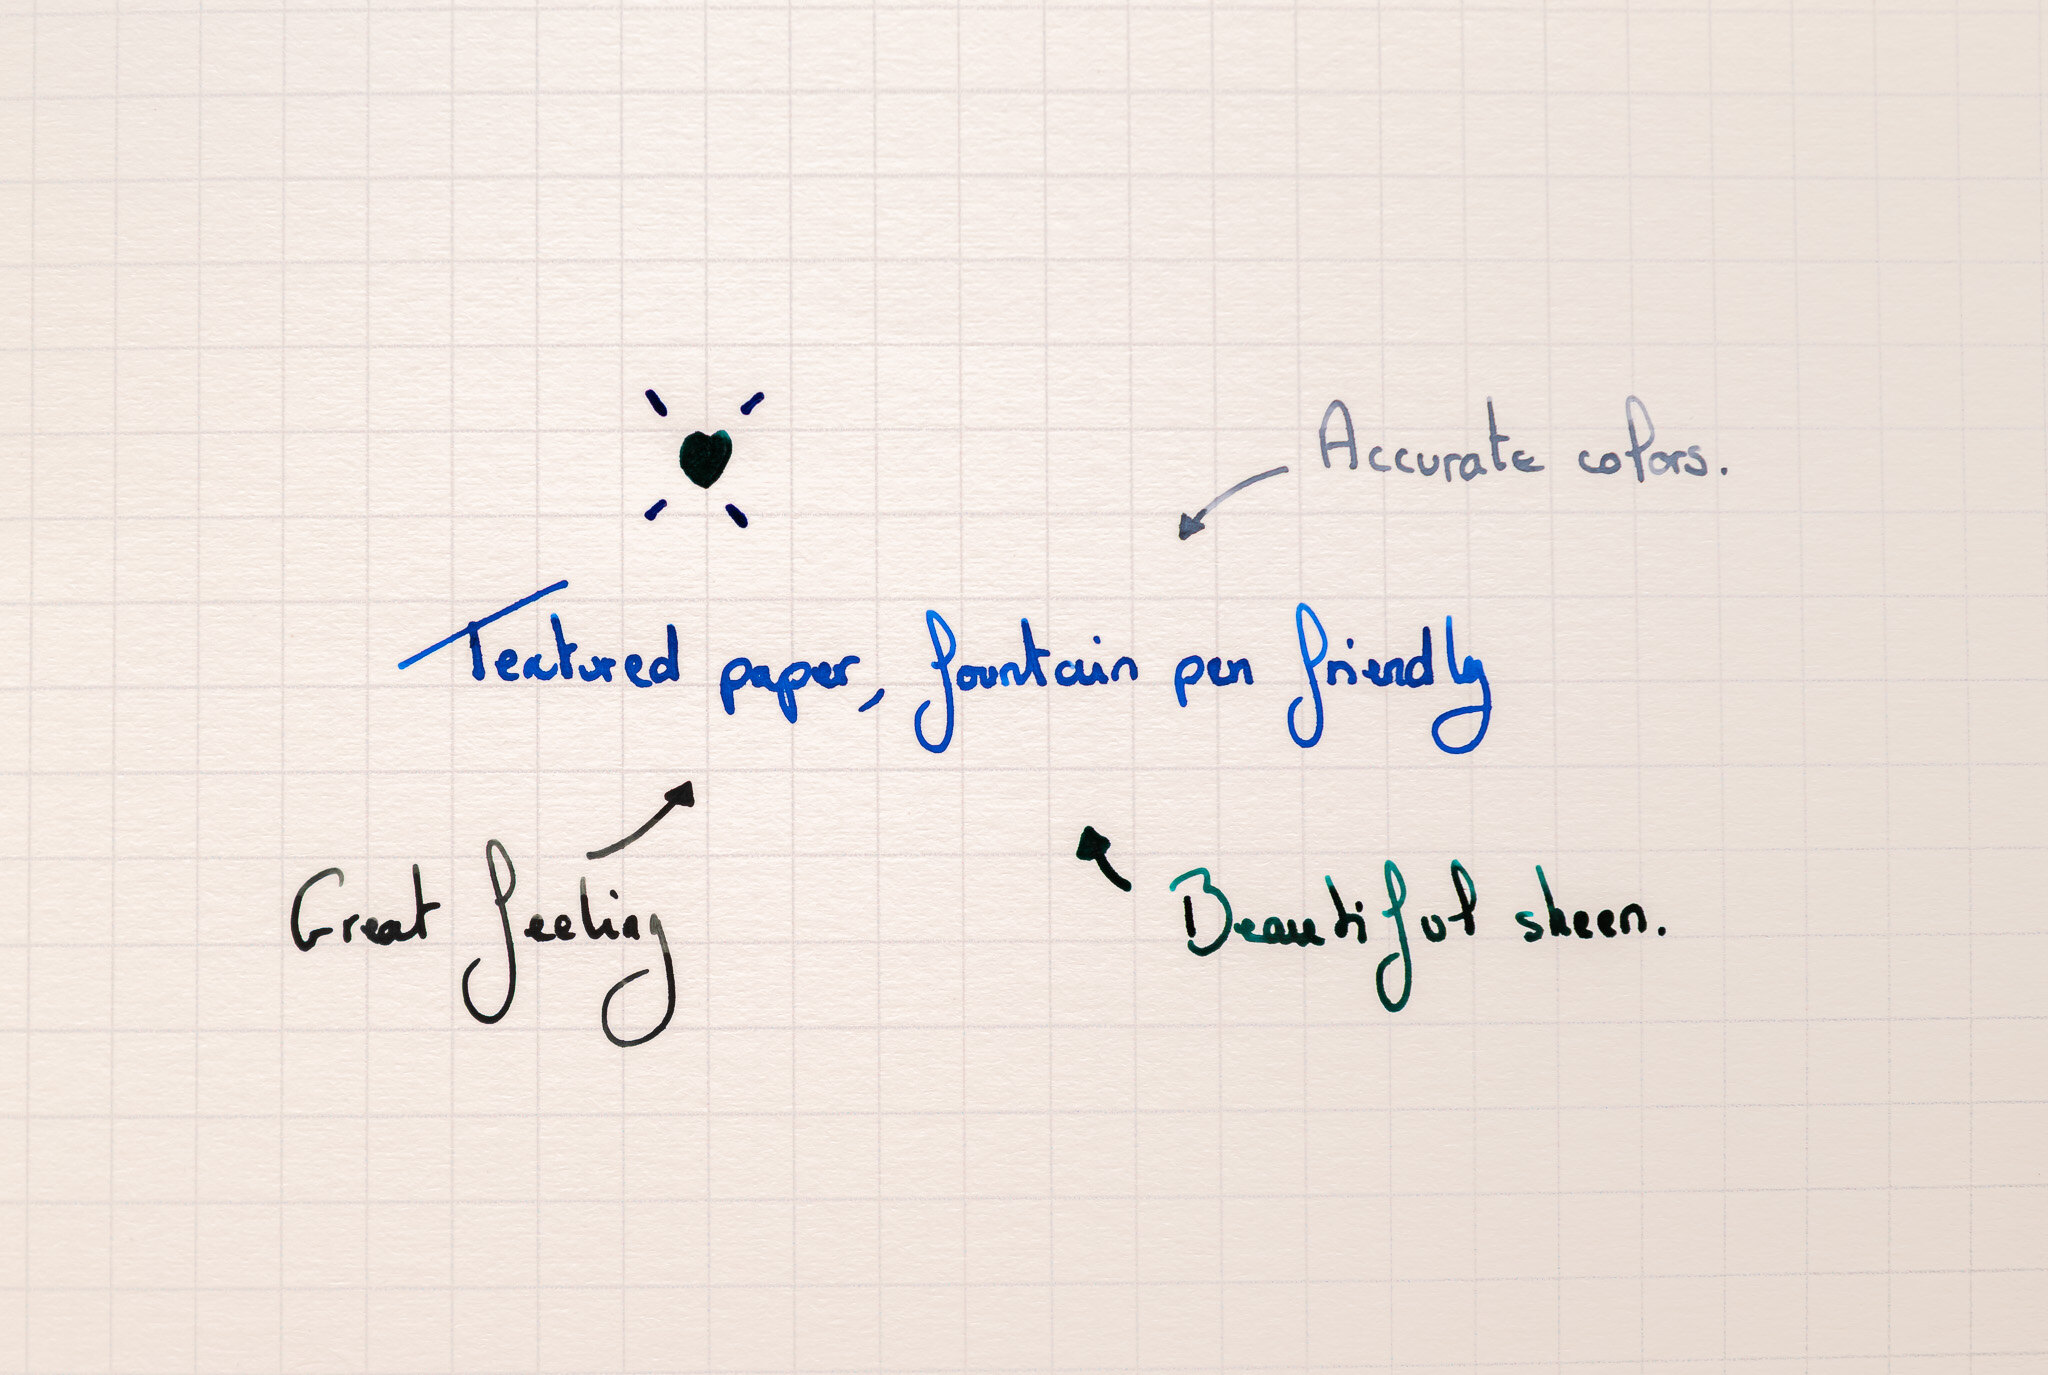 Accurate colors.
Textured paper, fountain pen friendly
Great feeling
Beautiful sheen.